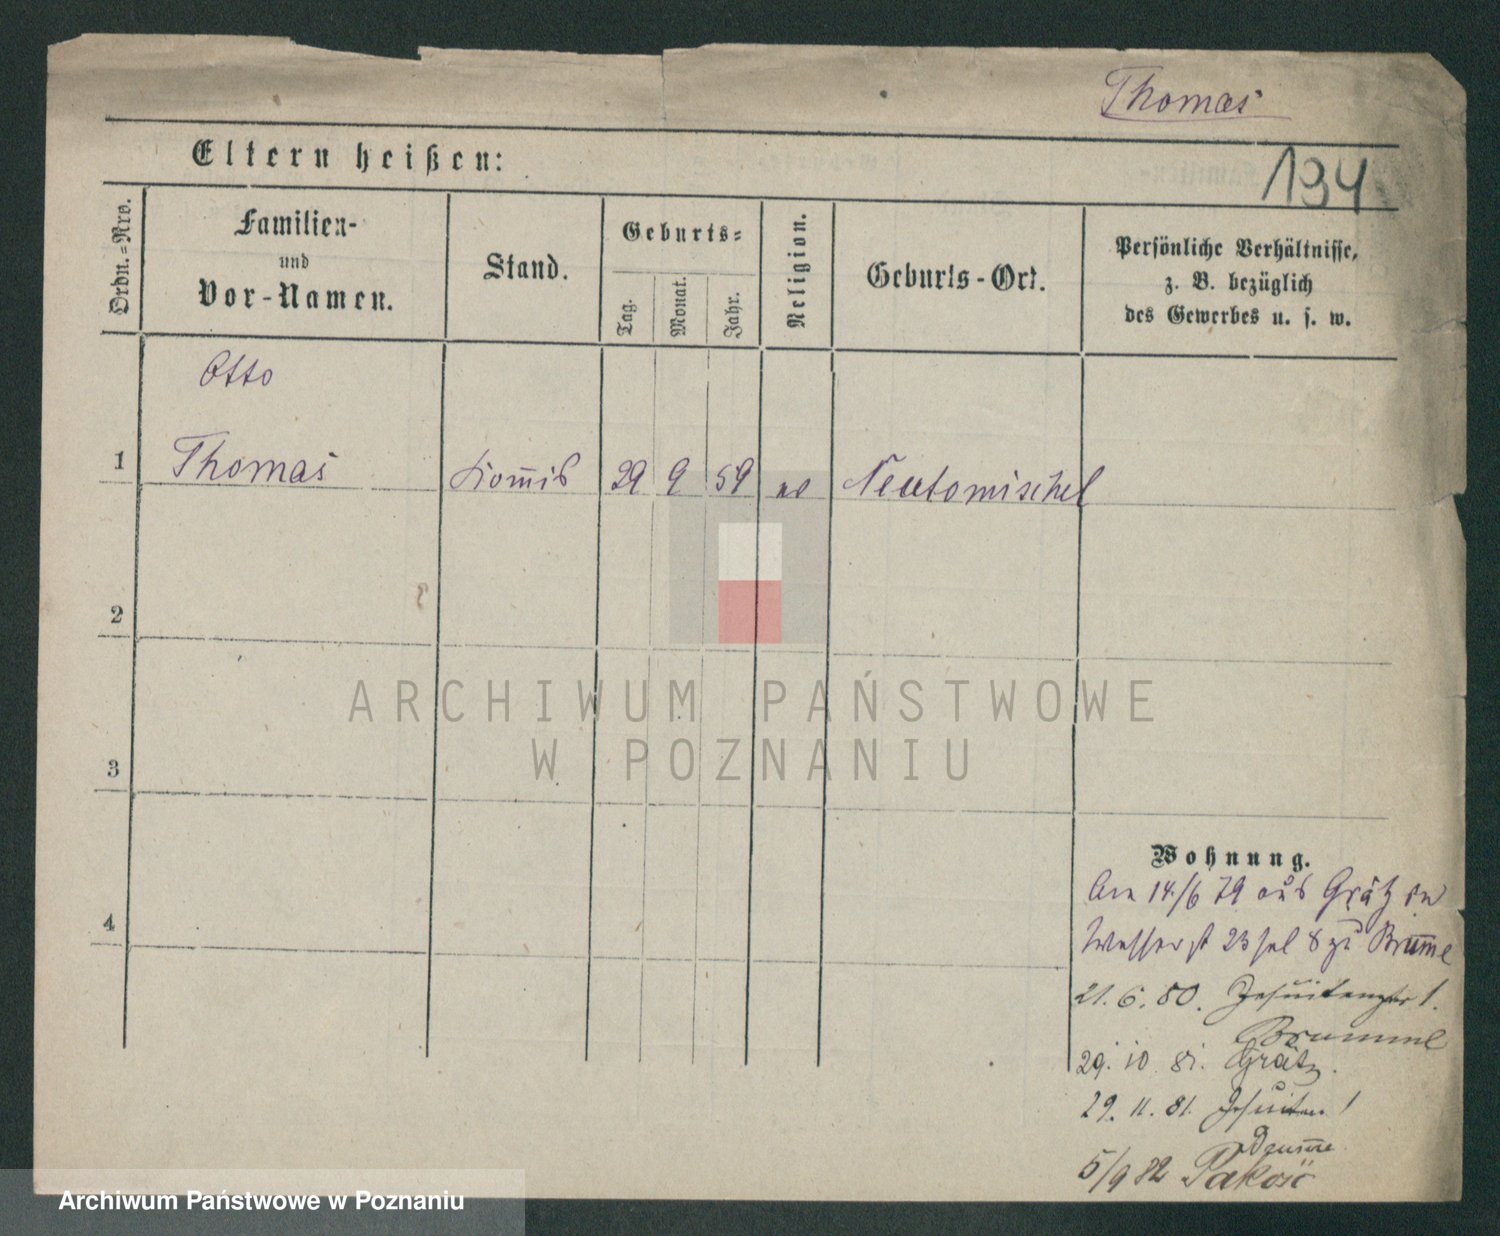 Thomas
194
Eltern heißen:
Ordn.=Nro.
Familien-
und
Vor-Namen.
Stand.
Geburts=
Tag.
Monat.
Jahr.
Religion.
Geburts-Ort.
Persönliche Verhältnisse,
z. B. bezüglich
des Gewerbes u. s. w.
Otto
1 Thomas Kom̄is 29 9 59 Neutomischel
2
3
4
ARCHIWUM PAŃSTWOWE
W POZNANIU
Wohnung.
Am 14/6 79 aus Grätz in
Wasserst 23 bei zu Brum̄e
21. 6. 80. Jesuitenstr 1.
Brumme
29. 10. 81. Grätz.
29. 11. 81. Jesuiten 1
5/9 82 Pakosc
Archiwum Państwowe w Poznaniu